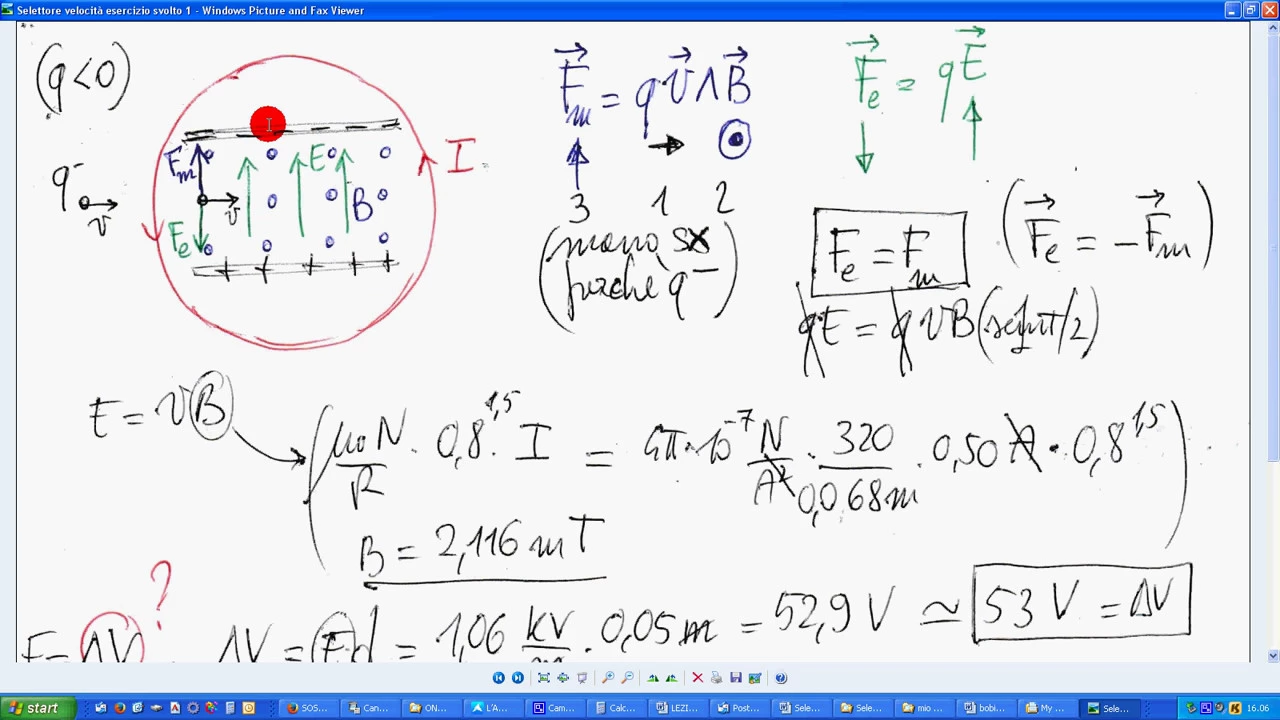 Selettore velocità esercizio svolto 1 - Windows Picture and Fax Viewer
(q<0)
F⃗m = q v⃗ Λ B⃗
F⃗e = q E⃗
q⁻ v
Fm v Fe E B I
3 1 2
(mano sx
perché q⁻)
Fe = Fm
(F⃗e = -F⃗m)
qE = q v B (senπ/2)
E = vB
(μ₀N/R · 0,8^1,5 · I = 4π·10⁻⁷ N/A² · 320/0,068m · 0,50 A · 0,8^1,5)
B = 2,116 mT
?
ΔV ΔV = E d = 1,06 kV/m · 0,05 m = 52,9 V ≃ 53 V = ΔV
start
SOS...
Can...
ON...
L'A...
Cam...
Calc...
LEZI...
Post...
Sele...
Sele...
mio ...
bobi...
My ...
Sele...
16.06